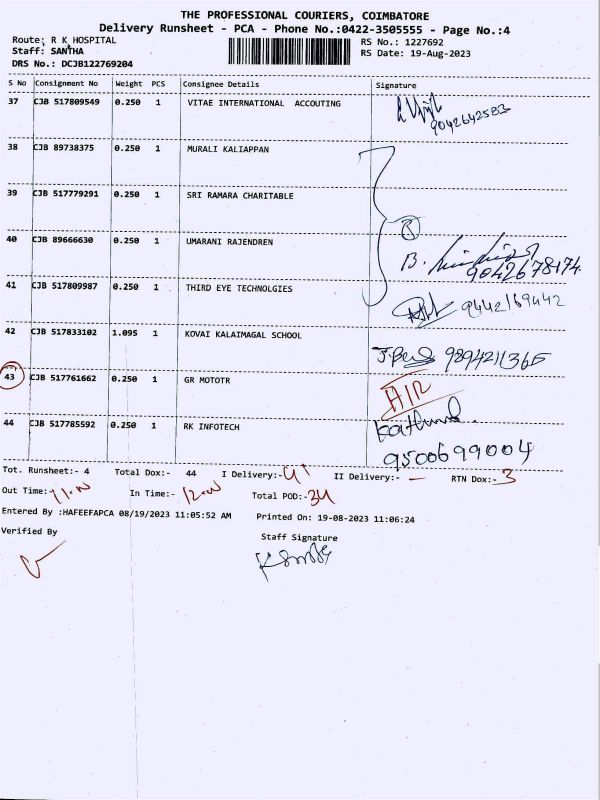 THE PROFESSIONAL COURIERS, COIMBATORE
Delivery Runsheet - PCA - Phone No.:0422-3505555 - Page No.:4
Route: R K HOSPITAL
RS No.: 1227692
Staff: SANTHA
RS Date: 19-Aug-2023
DRS No.: DCJB122769204
S No Consignment No Weight PCS Consignee Details Signature
37 CJB 517809549 0.250 1 VITAE INTERNATIONAL ACCOUTING
9042642583
38 CJB 89738375 0.250 1 MURALI KALIAPPAN
39 CJB 517779291 0.250 1 SRI RAMARA CHARITABLE
40 CJB 89666630 0.250 1 UMARANI RAJENDREN
B.
9042678174
41 CJB 517809987 0.250 1 THIRD EYE TECHNOLGIES
9442169442
42 CJB 517833102 1.095 1 KOVAI KALAIMAGAL SCHOOL
9894211365
43 CJB 517761662 0.250 1 GR MOTOTR
44 CJB 517785592 0.250 1 RK INFOTECH
9500699004
Tot. Runsheet:- 4 Total Dox:- 44 I Delivery:- 41 II Delivery:- — RTN Dox:- 3
Out Time:- In Time:- Total POD:- 34
Entered By :HAFEEFAPCA 08/19/2023 11:05:52 AM Printed On: 19-08-2023 11:06:24
Verified By
Staff Signature